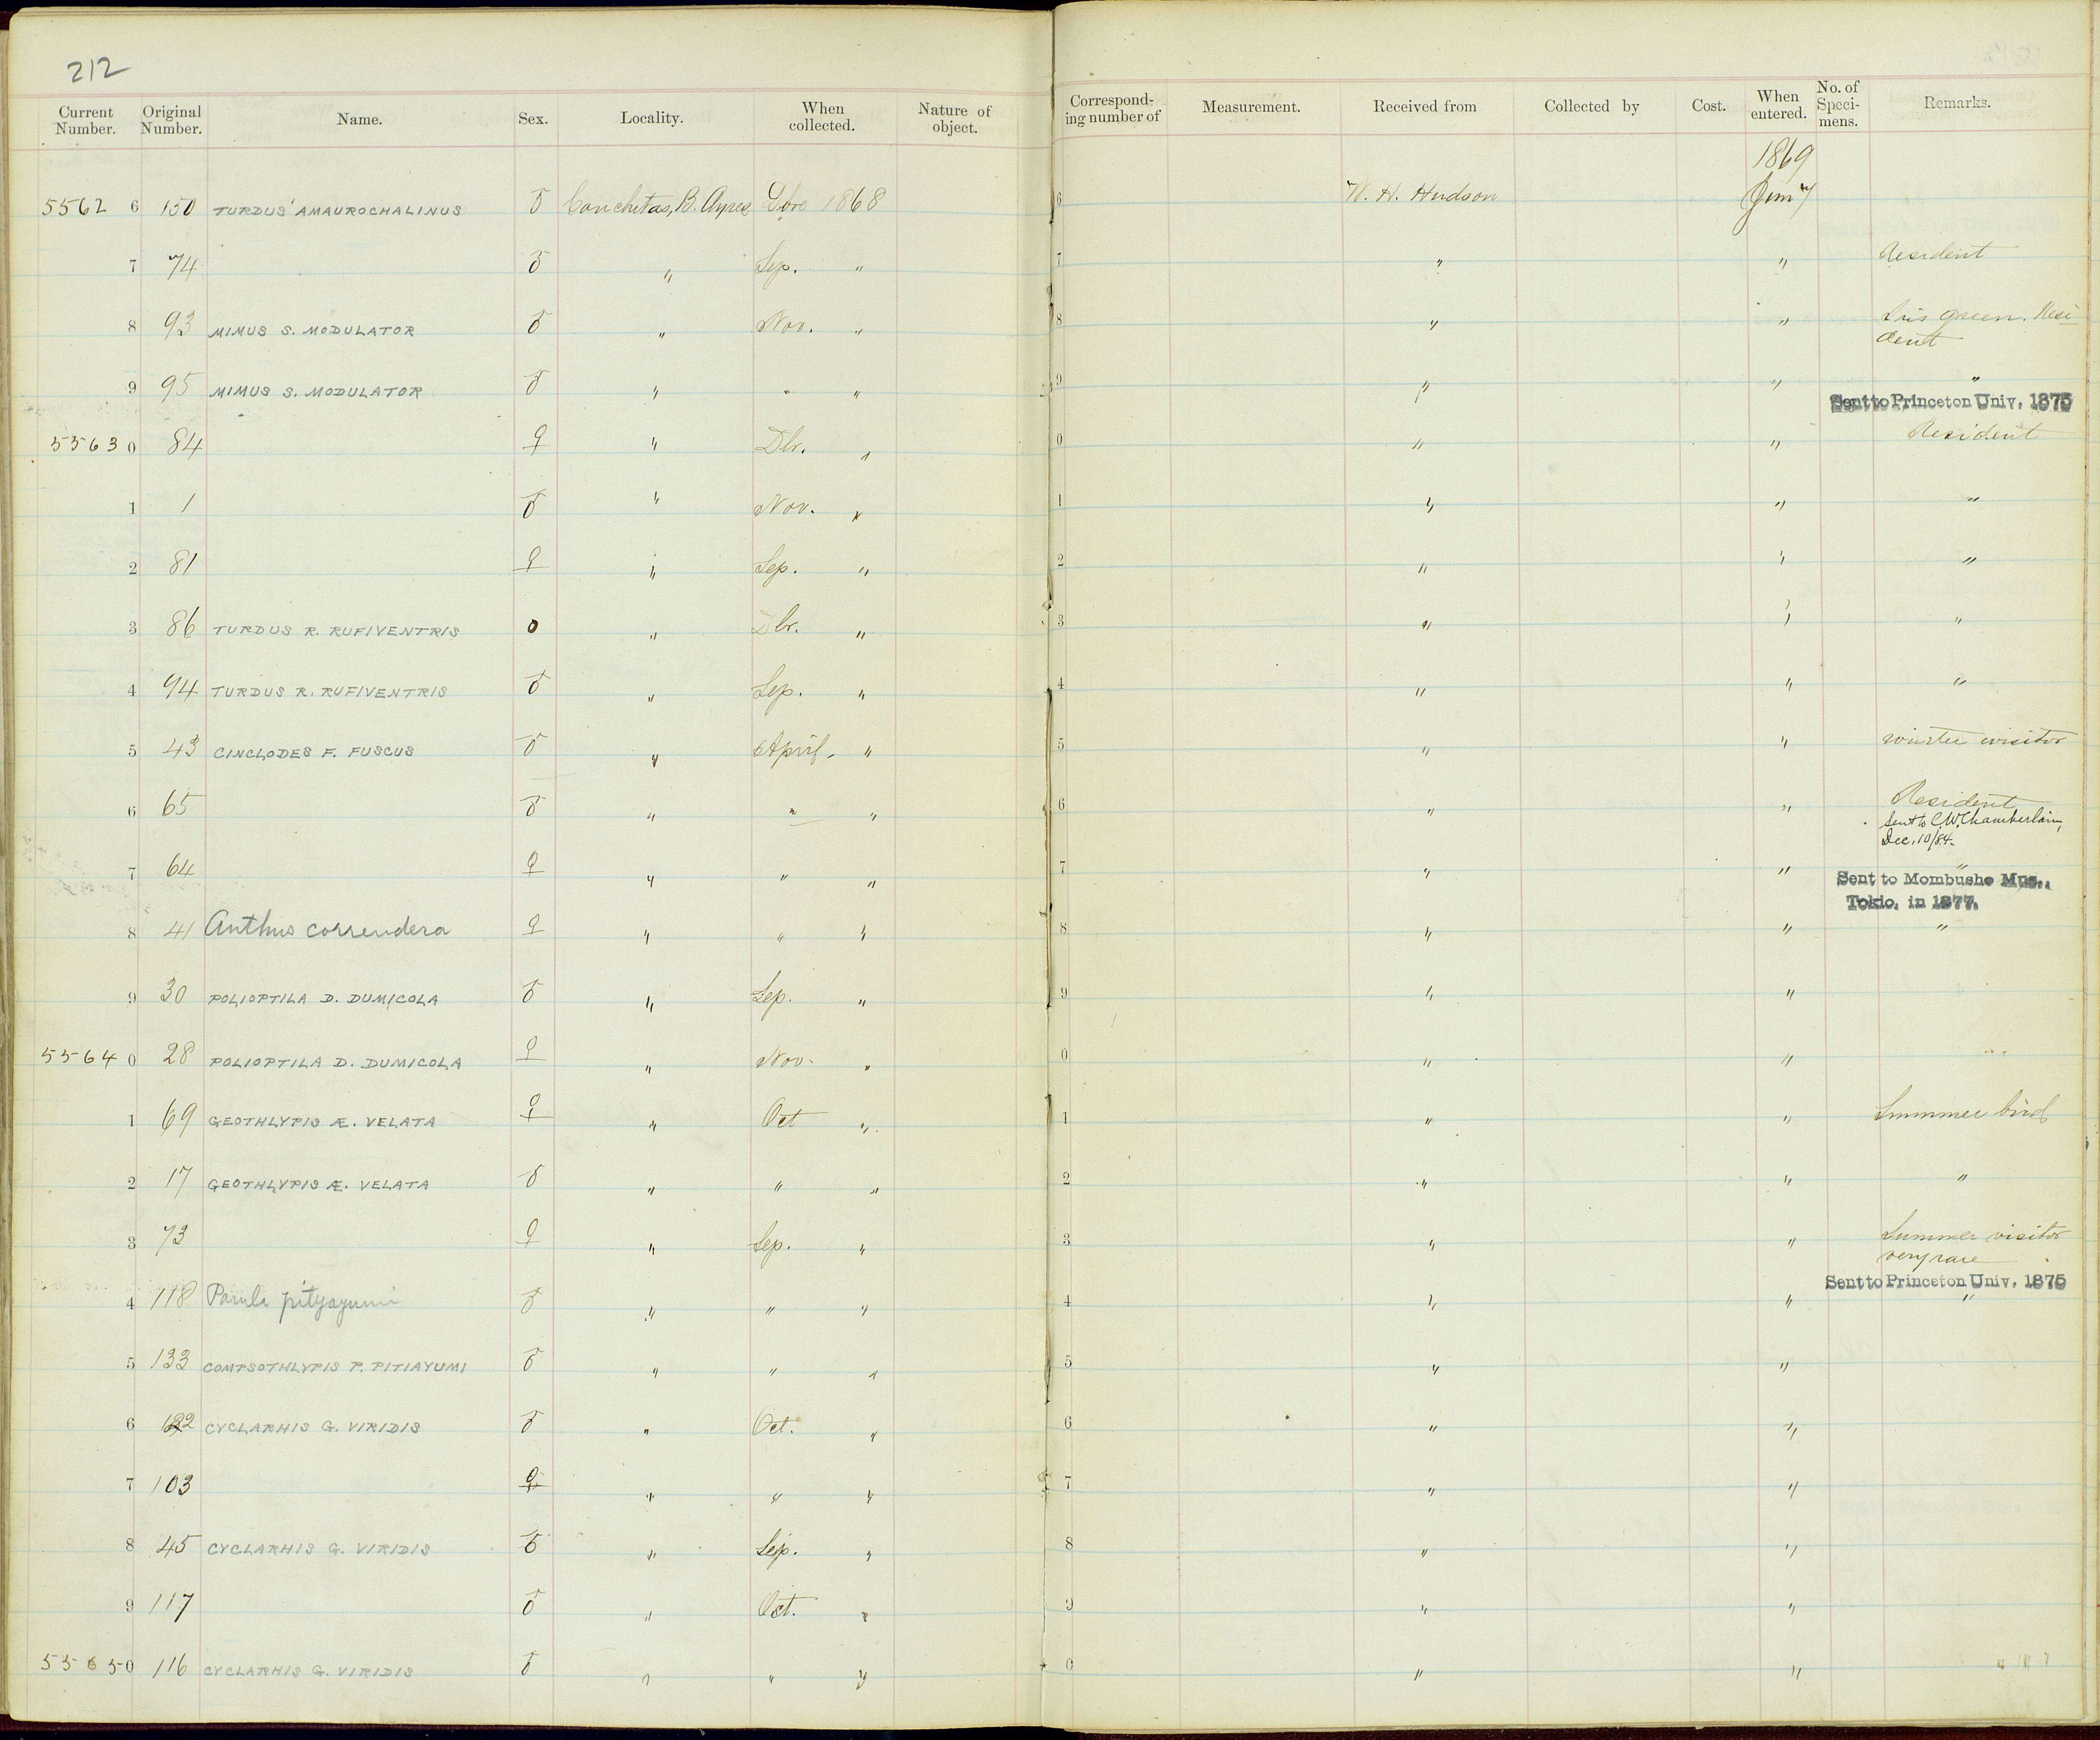 212
Current Number. Original Number. Name. Sex. Locality. When collected. Nature of object. Correspond-ing number of Measurement. Received from Collected by Cost. When entered. No. of Speci-mens. Remarks.
1869
5562 6 150 TURDUS AMAUROCHALINUS ♂ Conchitas, B. Ayres 1868 6 W. H. Hudson
7 74 ♂ " Sep. " 7 " " Resident
8 93 MIMUS S. MODULATOR ♂ " Nov. " 8 " " Iris green. Resi-
dent
9 95 MIMUS S. MODULATOR ♂ " " " 9 " " "
Sent to Princeton Univ. 1875
5563 0 84 ♀ " Dbr. " 0 " " Resident
1 1 ♂ " Nov. " 1 " " "
2 81 ♀ " Sep. " 2 " " "
3 86 TURDUS R. RUFIVENTRIS O " Dbr. " 3 " " "
4 94 TURDUS R. RUFIVENTRIS ♂ " Sep. " 4 " " "
5 43 CINCLODES F. FUSCUS ♂ " April " 5 " " winter visitor
6 65 ♂ " " " 6 " " Resident
Sent to C.W. Chamberlain,
Dec. 10/84.
7 64 ♀ " " " 7 " " "
Sent to Mombusho Mus.,
Tokio, in 1877.
8 41 Anthus correndera ♀ " " " 8 " " "
9 30 POLIOPTILA D. DUMICOLA ♂ " Sep. " 9 " "
5564 0 28 POLIOPTILA D. DUMICOLA ♀ " Nov. " 0 " "
1 69 GEOTHLYPIS Æ. VELATA ♀ " Oct " 1 " " Summer bird
2 17 GEOTHLYPIS Æ. VELATA ♂ " " " 2 " " "
3 73 ♀ " Sep. " 3 " " Summer visitor
very rare
Sent to Princeton Univ. 1875
4 118 Parula pityayumi ♂ " " " 4 " " "
5 133 COMPSOTHLYPIS P. PITIAYUMI ♂ " " " 5 " "
6 122 CYCLARHIS G. VIRIDIS ♂ " Oct. " 6 " "
7 103 ♀ " " " 7 " "
8 45 CYCLARHIS G. VIRIDIS ♂ " Sep. " 8 " "
9 117 ♂ " Oct. " 9 " "
5565 0 116 CYCLARHIS G. VIRIDIS ♂ " " " 0 " "